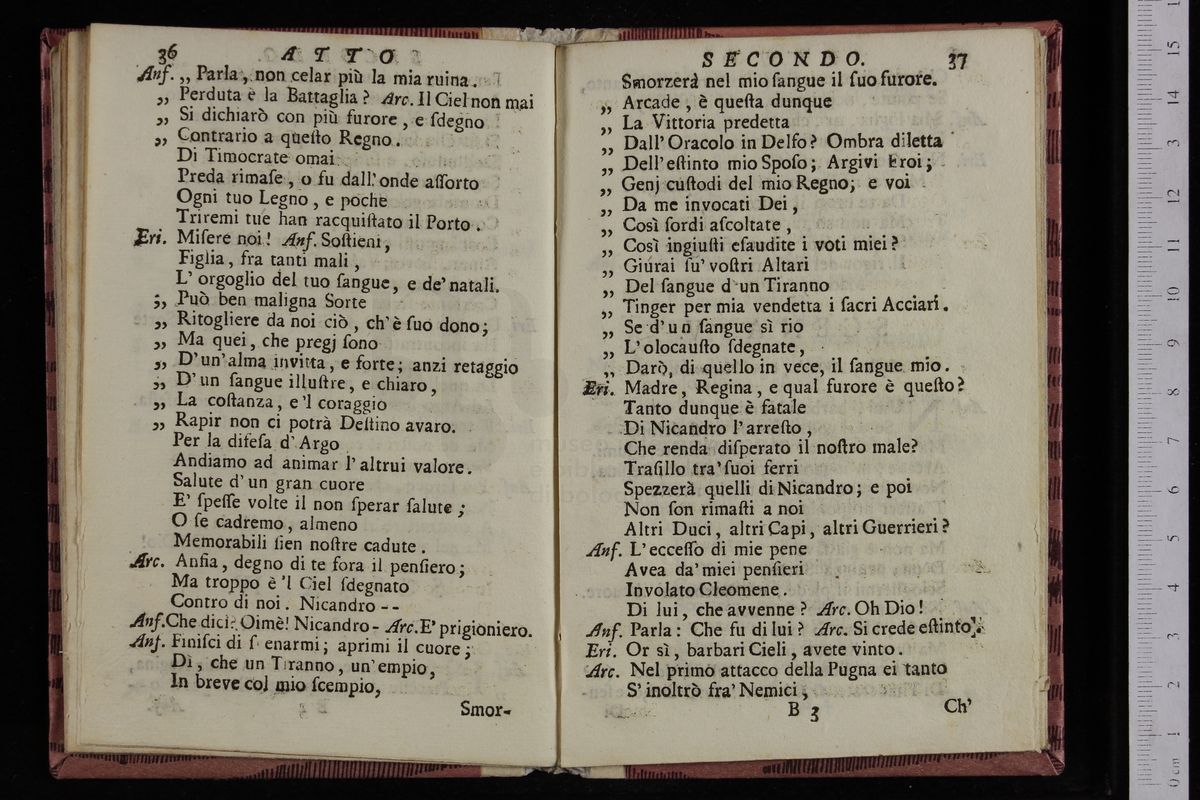 36 ATTO
Anſ. „ Parla, non celar più la mia ruina.
„ Perduta è la Battaglia? Arc. Il Ciel non mai
„ Si dichiarò con più furore, e ſdegno
„ Contrario a queſto Regno.
Di Timocrate omai
Preda rimaſe, o fu dall' onde aſſorto
Ogni tuo Legno, e poche
Triremi tue han racquiſtato il Porto.
Eri. Miſere noi! Anſ. Soſtieni,
Figlia, fra tanti mali,
L' orgoglio del tuo ſangue, e de' natali.
„ Può ben maligna Sorte
„ Ritogliere da noi ciò, ch' è ſuo dono;
„ Ma quei, che pregj ſono
„ D' un' alma invitta, e forte; anzi retaggio
„ D' un ſangue illuſtre, e chiaro,
„ La coſtanza, e 'l coraggio
„ Rapir non ci potrà Deſtino avaro.
Per la difeſa d' Argo
Andiamo ad animar l' altrui valore.
Salute d' un gran cuore
E' ſpeſſe volte il non ſperar ſalute;
O ſe cadremo, almeno
Memorabili ſien noſtre cadute.
Arc. Anſia, degno di te fora il penſiero;
Ma troppo è 'l Ciel ſdegnato
Contro di noi. Nicandro - -
Anſ. Che dici? Oimè! Nicandro - Arc. E' prigioniero.
Anſ. Finiſci di ſ enarmi; aprimi il cuore;
Dì, che un Tiranno, un' empio,
In breve col mio ſcempio,
Smor-
SECONDO. 37
Smorzerà nel mio ſangue il ſuo furore.
„ Arcade, è queſta dunque
„ La Vittoria predetta
„ Dall' Oracolo in Delfo? Ombra diletta
„ Dell' eſtinto mio Spoſo; Argivi Eroi;
„ Genj cuſtodi del mio Regno; e voi
„ Da me invocati Dei,
„ Così ſordi aſcoltate,
„ Così ingiuſti eſaudite i voti miei?
„ Giurai ſu' voſtri Altari
„ Del ſangue d' un Tiranno
„ Tinger per mia vendetta i ſacri Acciari.
„ Se d' un ſangue sì rio
„ L' olocauſto ſdegnate,
„ Darò, di quello in vece, il ſangue mio.
Eri. Madre, Regina, e qual furore è queſto?
Tanto dunque è fatale
Di Nicandro l' arreſto,
Che renda diſperato il noſtro male?
Traſillo tra' ſuoi ferri
Spezzerà quelli di Nicandro; e poi
Non ſon rimaſti a noi
Altri Duci, altri Capi, altri Guerrieri?
Anſ. L' ecceſſo di mie pene
Avea da' miei penſieri
Involato Cleomene.
Di lui, che avvenne? Arc. Oh Dio!
Anſ. Parla: Che fu di lui? Arc. Si crede eſtinto.
Eri. Or sì, barbari Cieli, avete vinto.
Arc. Nel primo attacco della Pugna ei tanto
S' inoltrò fra' Nemici,
B 3 Ch'